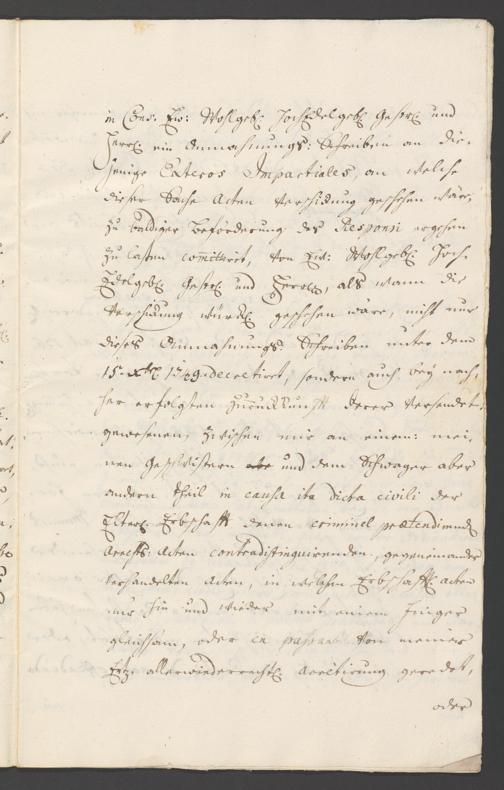 in Cons: Ew: Wohlgeb. HochEdelgeb. Gestr. und
Herrl. ein Anmahnungs-Schreiben an die-
jenige Exteros Impartiales, an welche
dieser Sache Acten Verschickung geschehen wäre,
zu baldiger Beförderung des Responsi ergehen
zu laßen committiret, von Ew: Wohlgeb. Hoch-
Edelgeb. Gestr. und Herrl., als wann die
Verschickung würckl. geschehen wäre, nicht nur
dieses Anmahnungs-Schreiben unter dem
15. xbr. 1749. decretiret, sondern auch bey nach-
her erfolgten Zurückkunft derer Versendet-
gewesenen, zwischen mir an einem: mei-
nen Geschwistern und dem Schwager aber
andern Theil in causa ita dicta civili der
Elterl. Erbschaft denen criminell praetendirenden
Arrests-Acten contradistinguirenden, gegeneinander
verhandelten Acten, in welchen Erbschafts Acten
nur hin und wieder mit einem Finger
gleichsam, oder en passant von meiner
allerwiederrechtl. Arretirung geredet,
oder